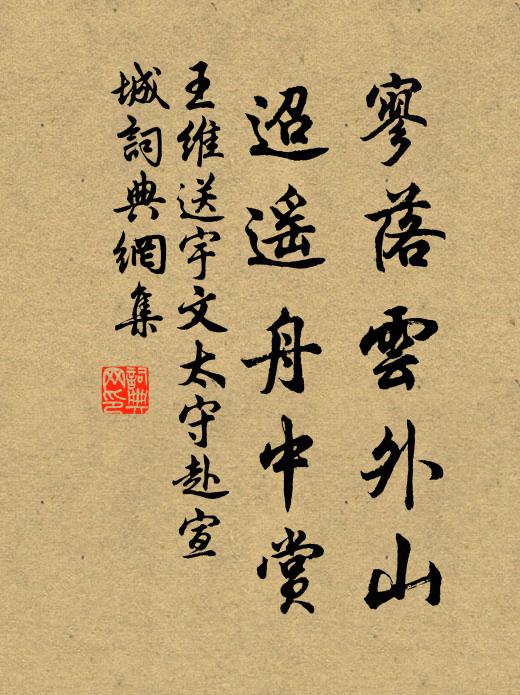 寥落雲外山
迢遥舟中赏
王維送宇文太守赴宣
城詞典網集
詞典网印